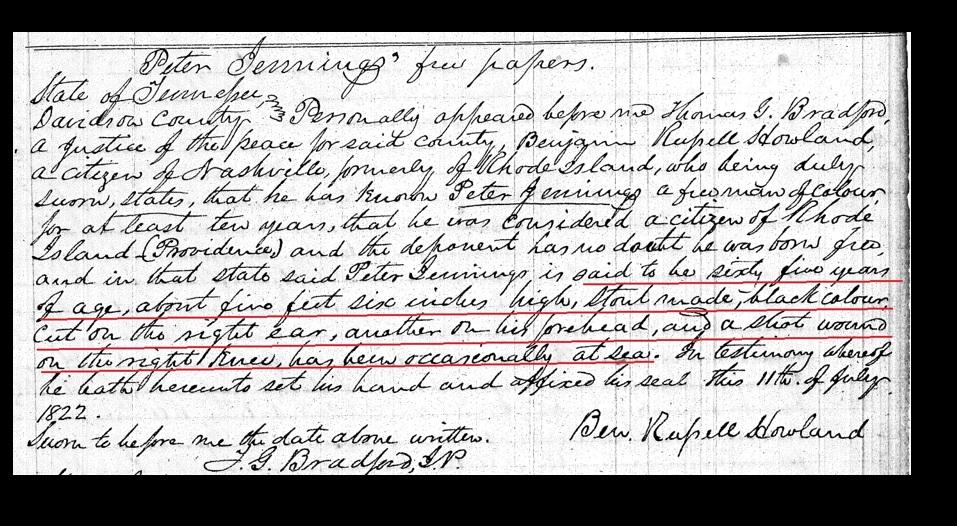 Peter Jennings' free papers.
State of Tennessee,
Davidson County Personally appeared before me Thomas G. Bradford,
a justice of the peace for said county, Benjamin Russell Howland,
a citizen of Nashville, formerly of Rhode Island, who being duly
sworn, states, that he has known Peter Jennings a free man of colour,
for at least ten years, that he was considered a citizen of Rhode
Island (Providence) and the deponent has no doubt he was born free
and in that state said Peter Jennings is said to be sixty five years
of age, about five feet six inches high, stout made, black colour,
cut on the right ear, another on his forehead, and a shot wound
on the right knee, has been occasionally at sea. In testimony whereof
he hath hereunto set his hand and affixed his seal this 11th. of July
1822.
Sworn to before me the date above written. Ben. Russell Howland
T. G. Bradford, J.P.